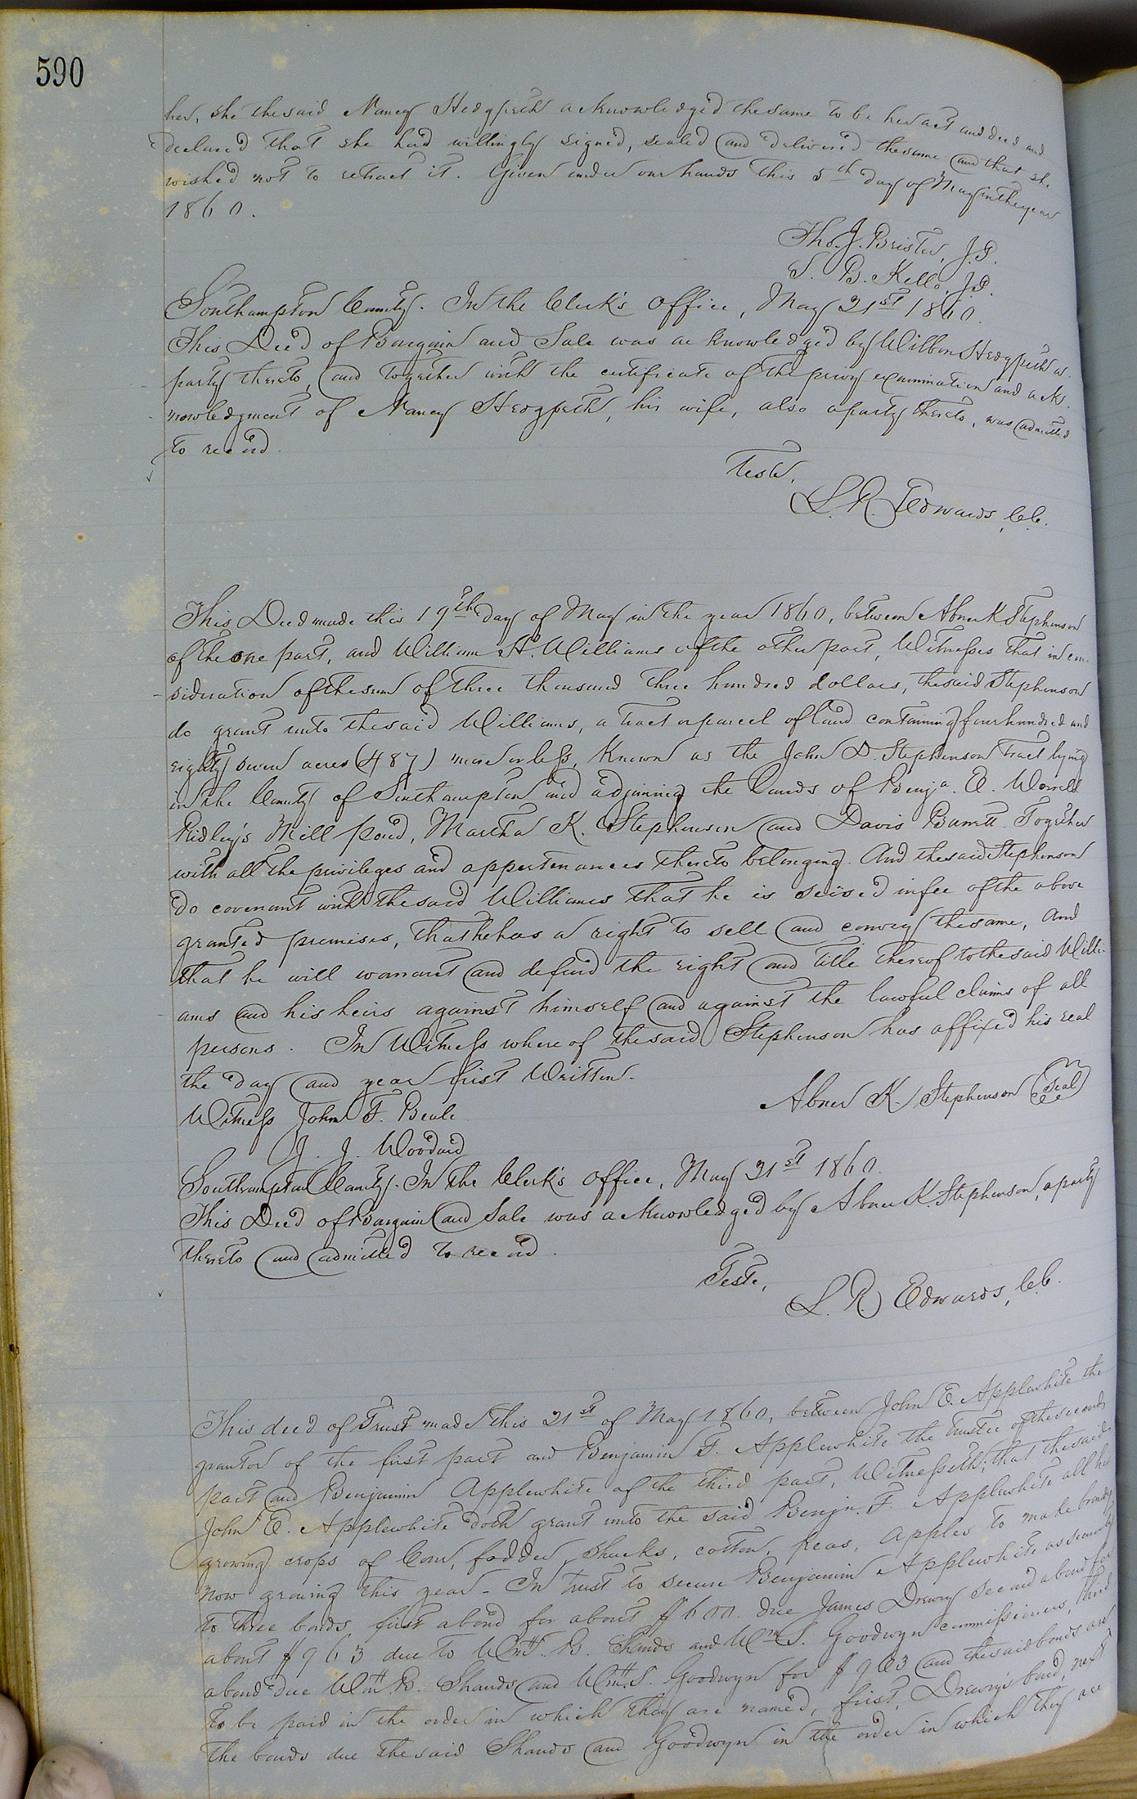 590
her, she the said Nancy Hedgpeth acknowledged the same to be her act and deed and
declared that she had willingly signed, sealed and delivered the same and that she
wished not to retract it. Given under our hands this 5th day of May in the year
1860.
Tho. J. Brister, J.P.
S. B. Kello, J.P.
Southampton County. In the Clerk's Office, May 21st 1860.
This Deed of Bargain and Sale was acknowledged by Hedgpeth a
party thereto, and together with the certificate of the privy examination and ack
nowledgment of Nancy Hedgpeth, his wife, also a party thereto, was admitted
to record.
Teste,
L. R. Edwards, C.C.
This Deed made this 19th day of May in the year 1860, between Abner K Stephenson
of the one part, and William H. Williams of the other part, Witnesses that in con-
sideration of the sum of three thousand three hundred dollars, the said Stephenson
do grant unto the said Williams, a tract or parcel of land containing four hundred and
eighty seven acres (487) more or less, Known as the John D. Stephenson Tract lying
in the County of Southampton and adjoining the lands of Benja. Worrell
Ridley's Mill pond, Martha K. Stephenson and Davis Barrett Together
with all the privileges and appertenances thereto belonging. And the said Stephenson
do covenant with the said Williams that he is seized in fee of the above
granted premises, that he has a right to sell and convey the same, and
that he will warrant and defend the right and title thereof to the said Willi-
ams and his heirs against himself and against the lawful claims of all
persons. In Witness whereof the said Stephenson has affixed his seal
the day and year first Written.
Abner K. Stephenson (Seal)
Witness John F. Beale
J. J. Woodard
Southampton County. In the Clerk's Office, May 21st 1860.
This Deed of Bargain and Sale was acknowledged by Abner K. Stephenson, a party
thereto and admitted to record.
Teste,
L. R. Edwards, C.C.
This deed of Trust made this 21st of May 1860, between John E. Applewhite the
grantor of the first part and Benjamin F. Applewhite the trustee of the second
part and Benjamin Applewhite of the third part, Witnesseth; that the said
John E. Applewhite doth grant unto the said Benjn. F. Applewhite all his
growing crops of Corn, fodder, Shucks, cotton, peas, apples to make brandy
now growing this year. In trust to secure Benjamin Applewhite as security
to three bonds, first a bond for about $600 due James Drewry second a bond for
about $963 due to Wm. B. Shands and Wm. S. Goodwyn commissioners, third
a bond due Wm. B. Shands and Wm. S. Goodwyn for $963 and the said bonds are
to be paid in the order in which they are named, first, Drewry's bond, next
the bonds due the said Shands and Goodwyn in the order in which they are